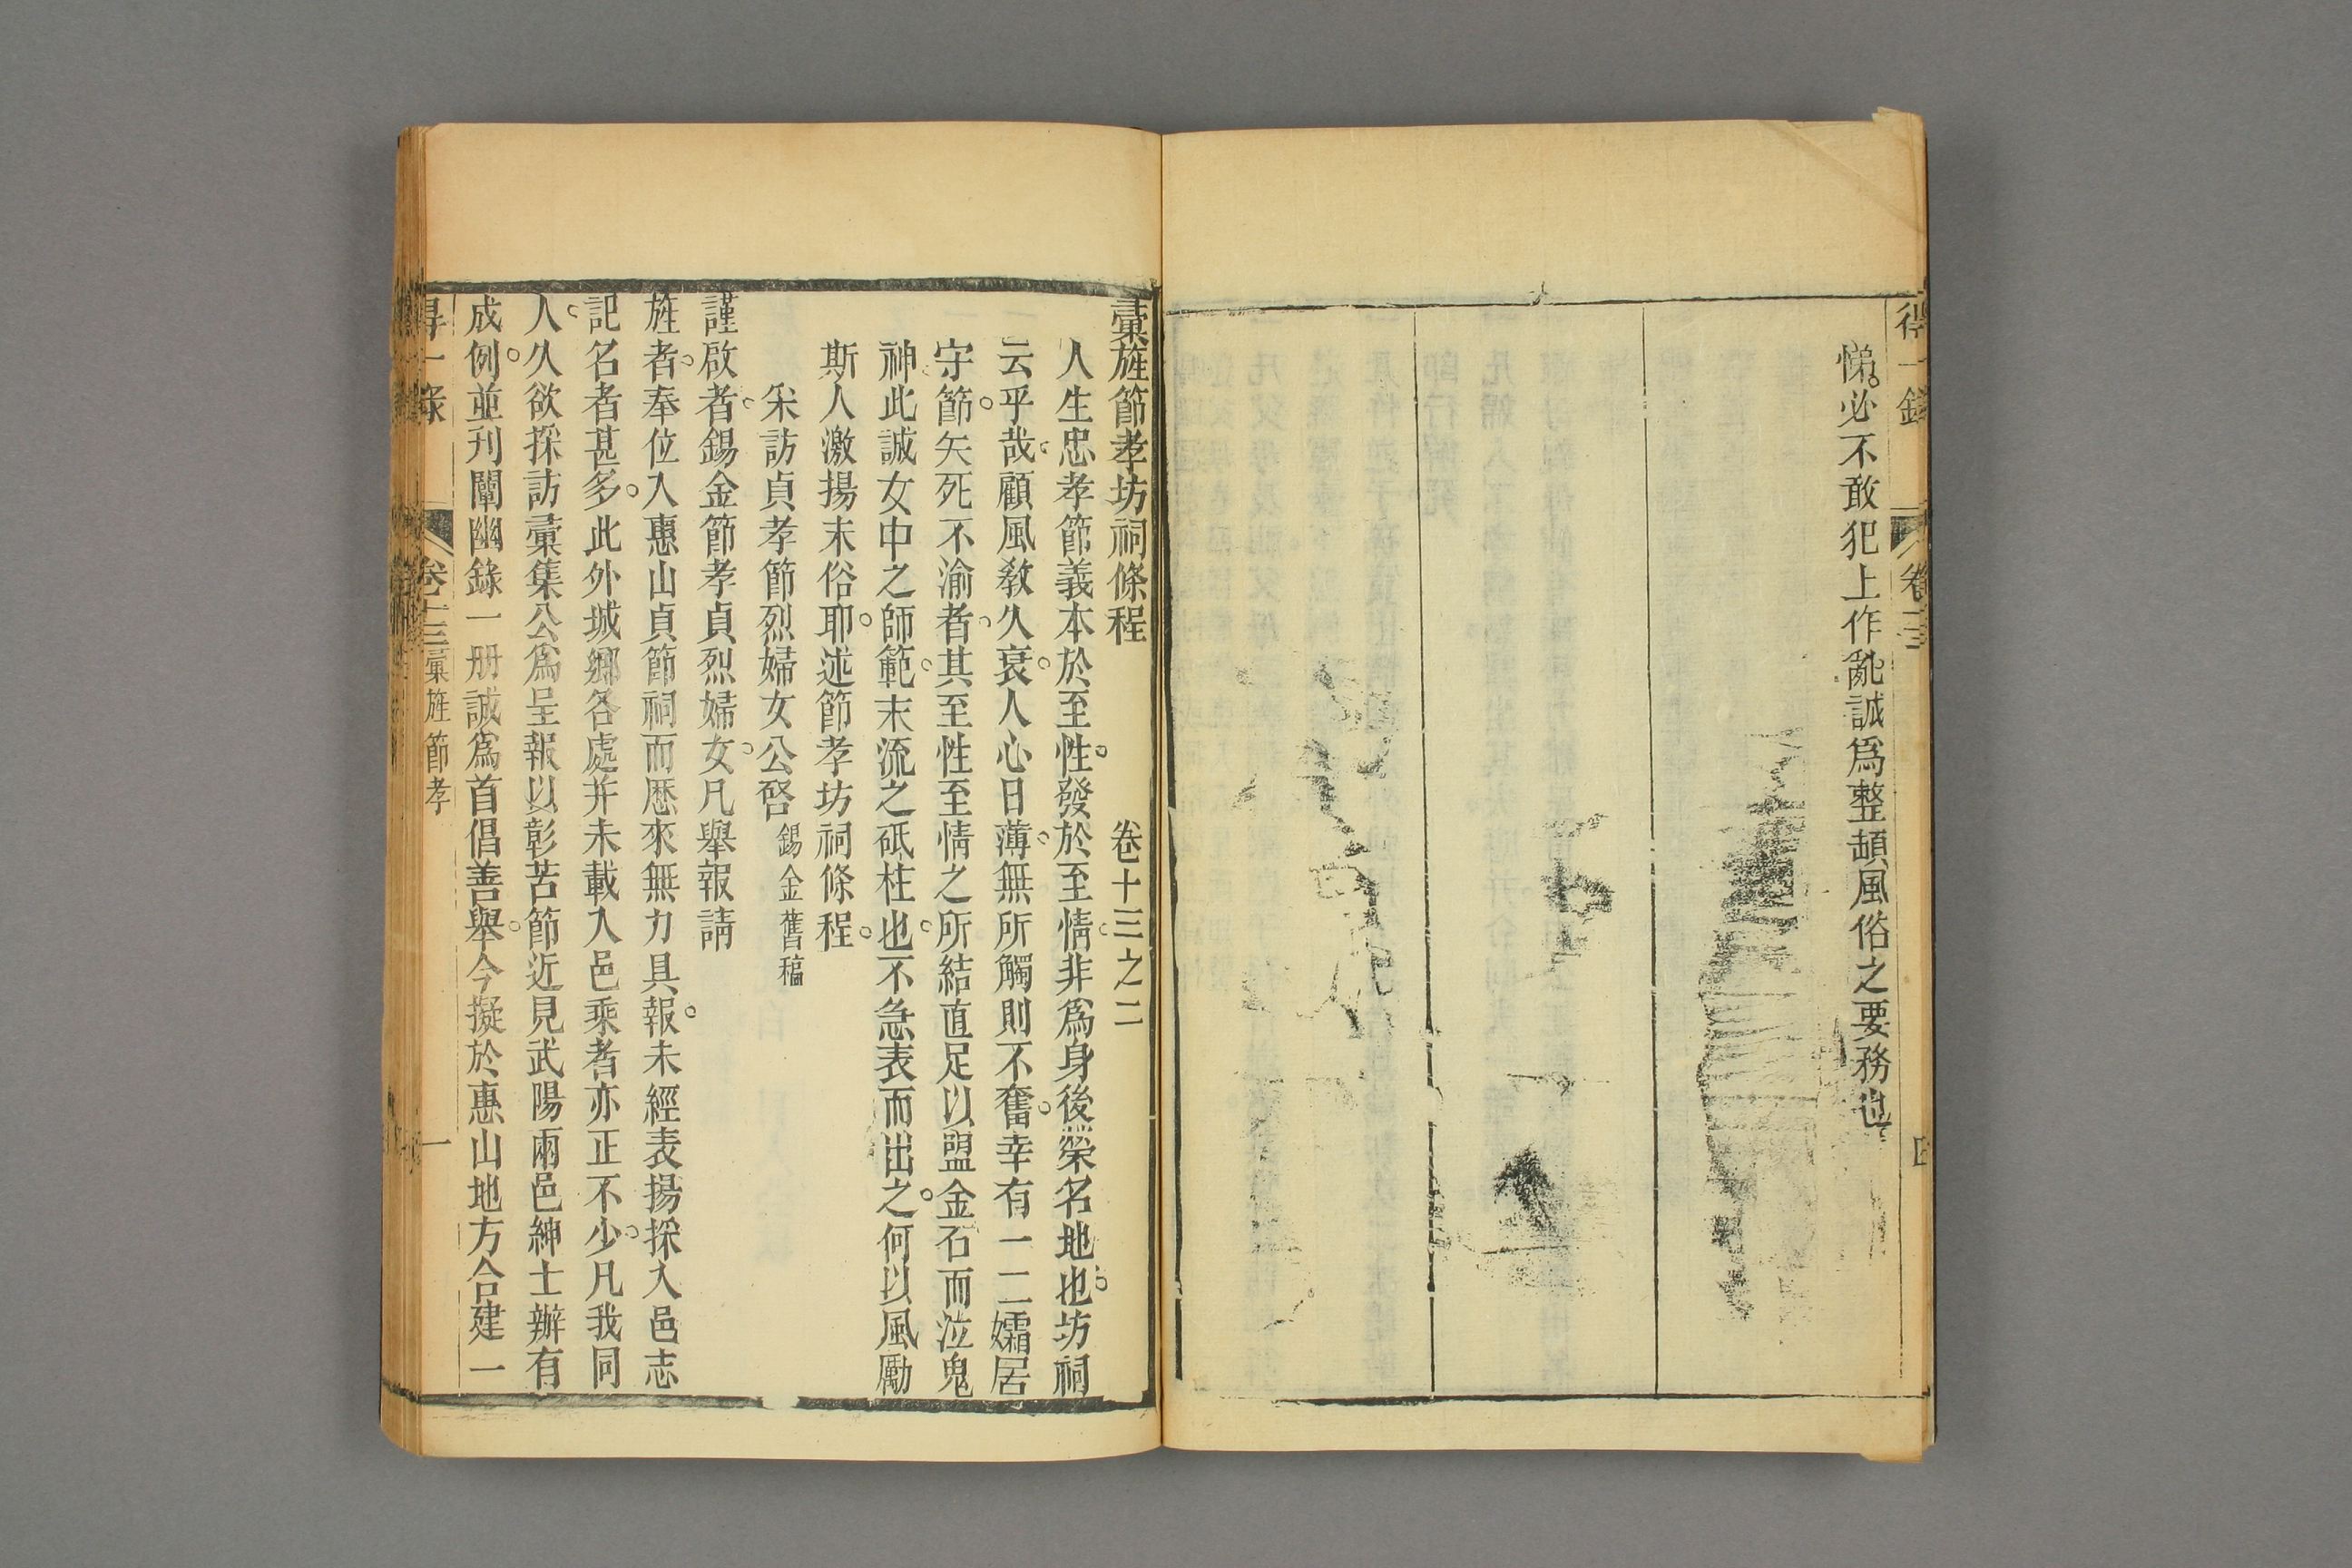 得一錄 卷十三 四
悌。必不敢犯上作亂。誠爲整頓風俗之要務也
彙旌節孝坊祠條程 卷十三之二
人生忠孝節義本於至性。發於至情。非爲身後榮名地也。坊祠
云乎哉。顧風教久衰。人心日薄。無所觸則不奮。幸有一二孀居
守節。矢死不渝者。其至性至情之所結直足以盟金石而泣鬼
神。此誠女中之師範。末流之砥柱也。不急表而出之。何以風勵
斯人激揚末俗耶。述節孝坊祠條程。
采訪貞孝節烈婦女公啓 錫金舊稿
謹啟者。錫金節孝貞烈婦女。凡舉報請
旌者。奉位入惠山貞節祠而歷來無力具報。未經表揚採入邑志
記名者甚多。此外城鄉各處并未載入邑乘者亦正不少。凡我同
人。久欲採訪彙集公爲呈報以彰苦節近見武陽兩邑紳士辦有
成例。並刊闡幽錄一册誠爲首倡善舉。今擬於惠山地方合建一
得一錄 卷十三 彙旌節孝 一